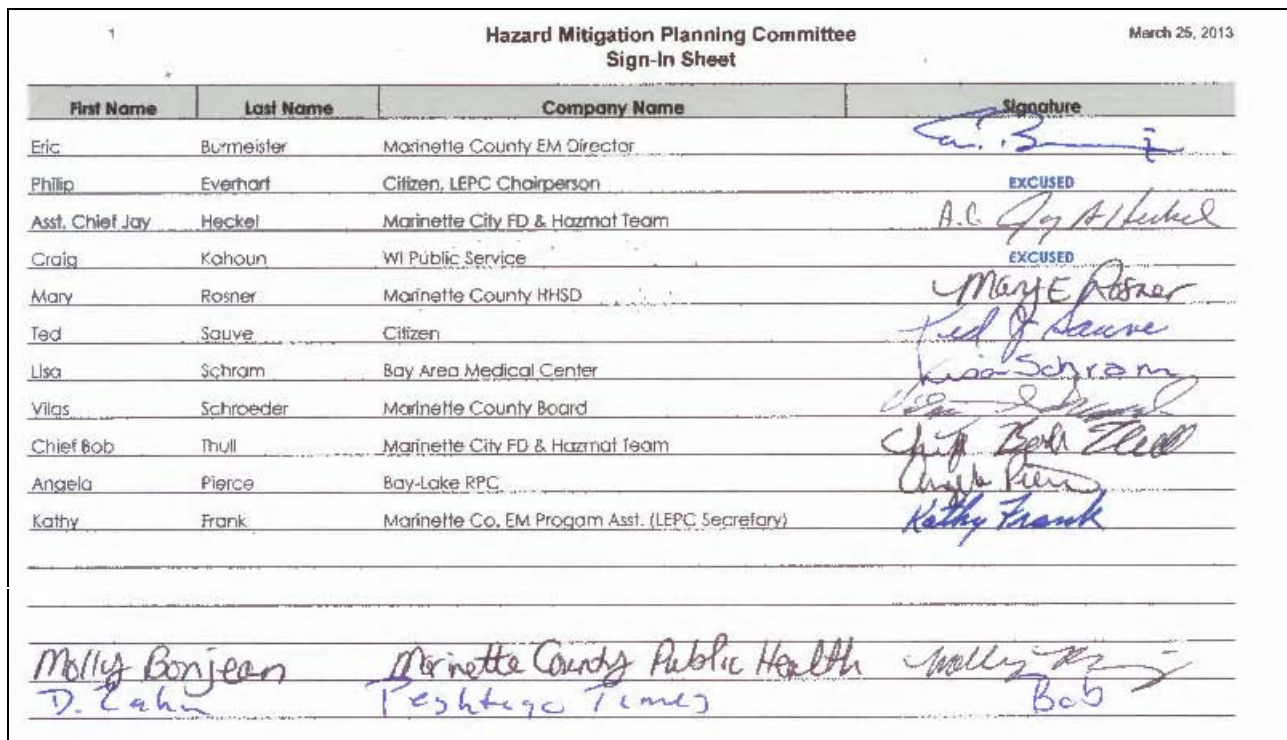 1 Hazard Mitigation Planning Committee March 25, 2013
Sign-In Sheet
First Name Last Name Company Name Signature
Eric Burmeister Marinette County EM Director
Philip Everhart Citizen, LEPC Chairperson EXCUSED
Asst. Chief Jay Heckel Marinette City FD & Hazmat Team A.C. Jay A Heckel
Craig Kahoun WI Public Service EXCUSED
Mary Rosner Marinette County HHSD Mary E Rosner
Ted Sauve Citizen Ted J Sauve
Lisa Schram Bay Area Medical Center Lisa Schram
Vilas Schroeder Marinette County Board
Chief Bob Thull Marinette City FD & Hazmat Team Chief Bob Thull
Angela Pierce Bay-Lake RPC Angela Pierce
Kathy Frank Marinette Co. EM Progam Asst. (LEPC Secretary) Kathy Frank
Molly Bonjean Marinette County Public Health Molly
D. Peshtigo Times Bob